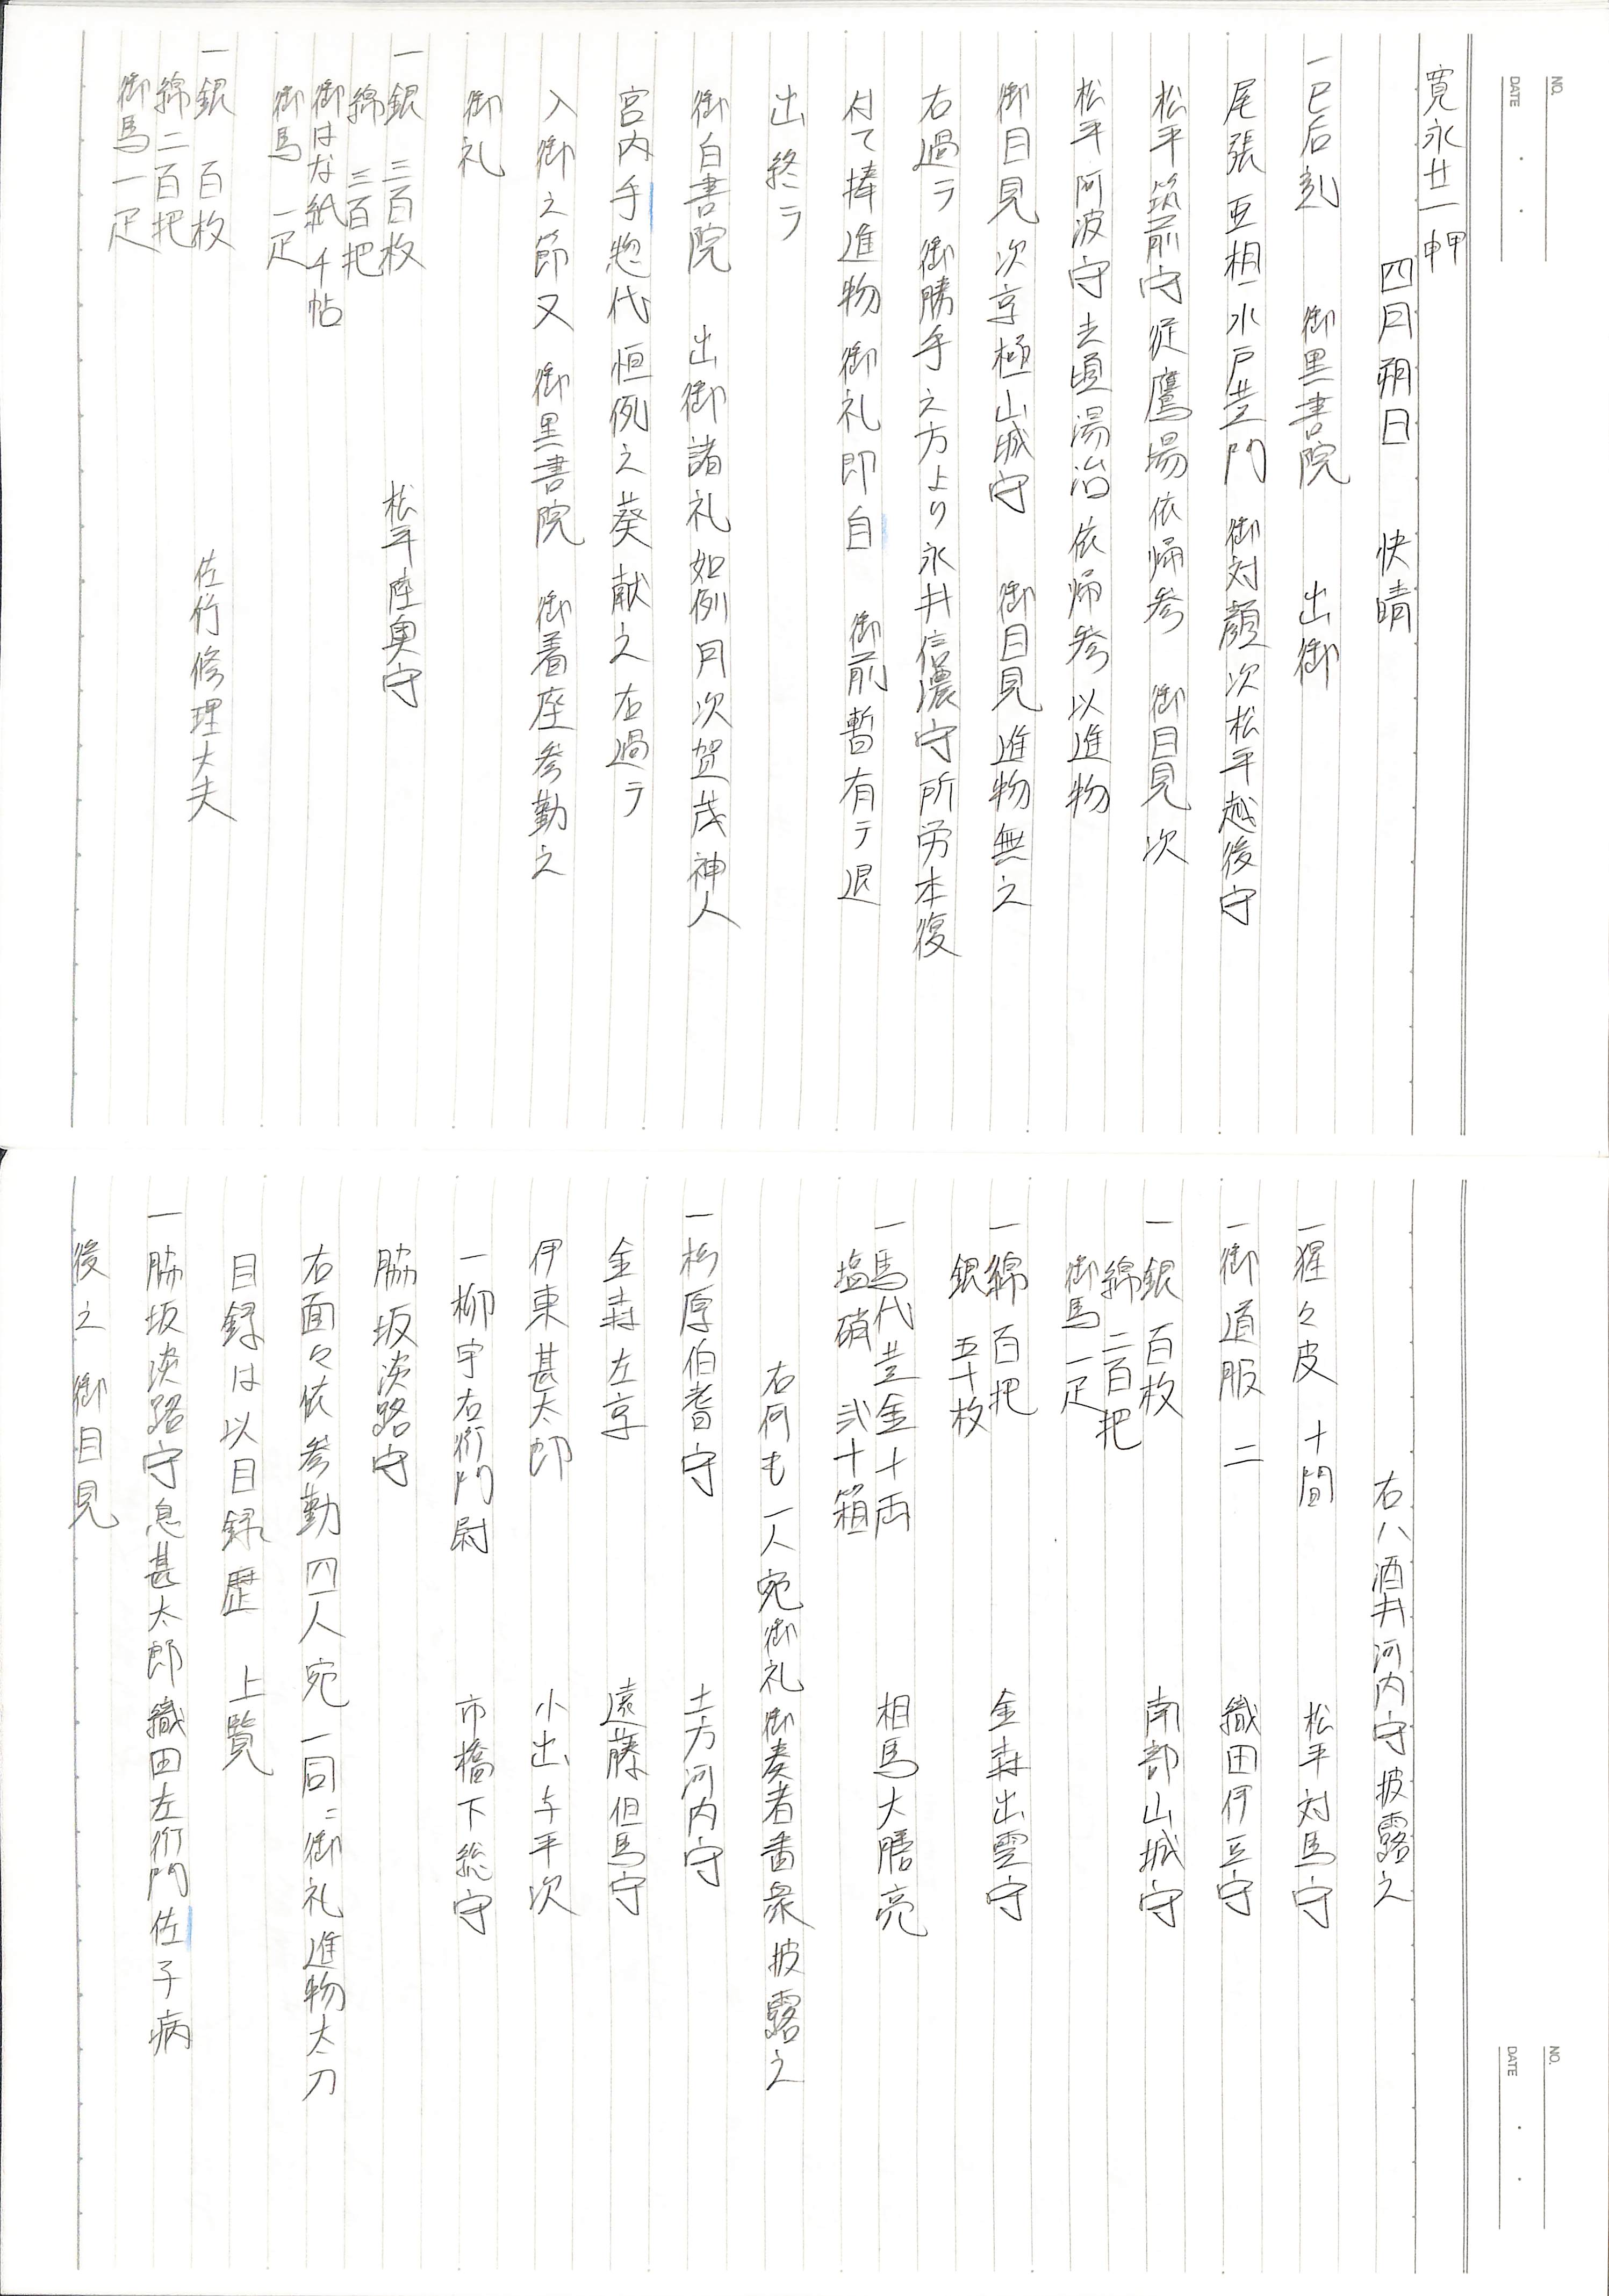 NO.
DATE
寛永廿一甲申
四月朔日　快晴
一巳后刻　御黒書院　出御
尾張亜相水戸黄門　御対顔次松平越後守
松平筑前守従鷹場依帰参　御目見次
松平阿波守去頃湯治依帰参以進物
御目見次京極山城守　御目見進物無之
右過ラ御勝手之方より永井信濃守所労本復
付て捧進物御礼即自　御前暫有テ退
出終ラ
御白書院　出御諸礼如例月次賀茂神人
宮内手惣代恒例之葵献之右過ラ
入御之節又　御黒書院　御着座参勤之
御礼
一銀　三百枚　松平陸奥守
綿　三百把
御はな紙　千帖
御馬　一疋
一銀　百枚　佐竹修理大夫
綿二百把
御馬一疋
NO.
DATE
右ハ酒井河内守披露之
一猩々皮　十間　松平対馬守
一御道服　二　織田伊豆守
一銀　百枚　南部山城守
綿　二百把
御馬　一疋
一綿　百把　金森出雲守
銀　五十枚
一馬代黄金十両　相馬大膳亮
塩硝　弐十箱
右何も一人宛御礼御奏者番衆披露之
一杉原伯耆守　土方河内守
金森左京　遠藤但馬守
伊東甚太郎　小出与平次
一柳宇右衛門尉　市橋下総守
脇坂淡路守
右面々依参勤四人宛一同ニ御礼進物太刀
目録は以目録歴　上覧
一脇坂淡路守息甚太郎織田左衛門佐子病
後之　御目見